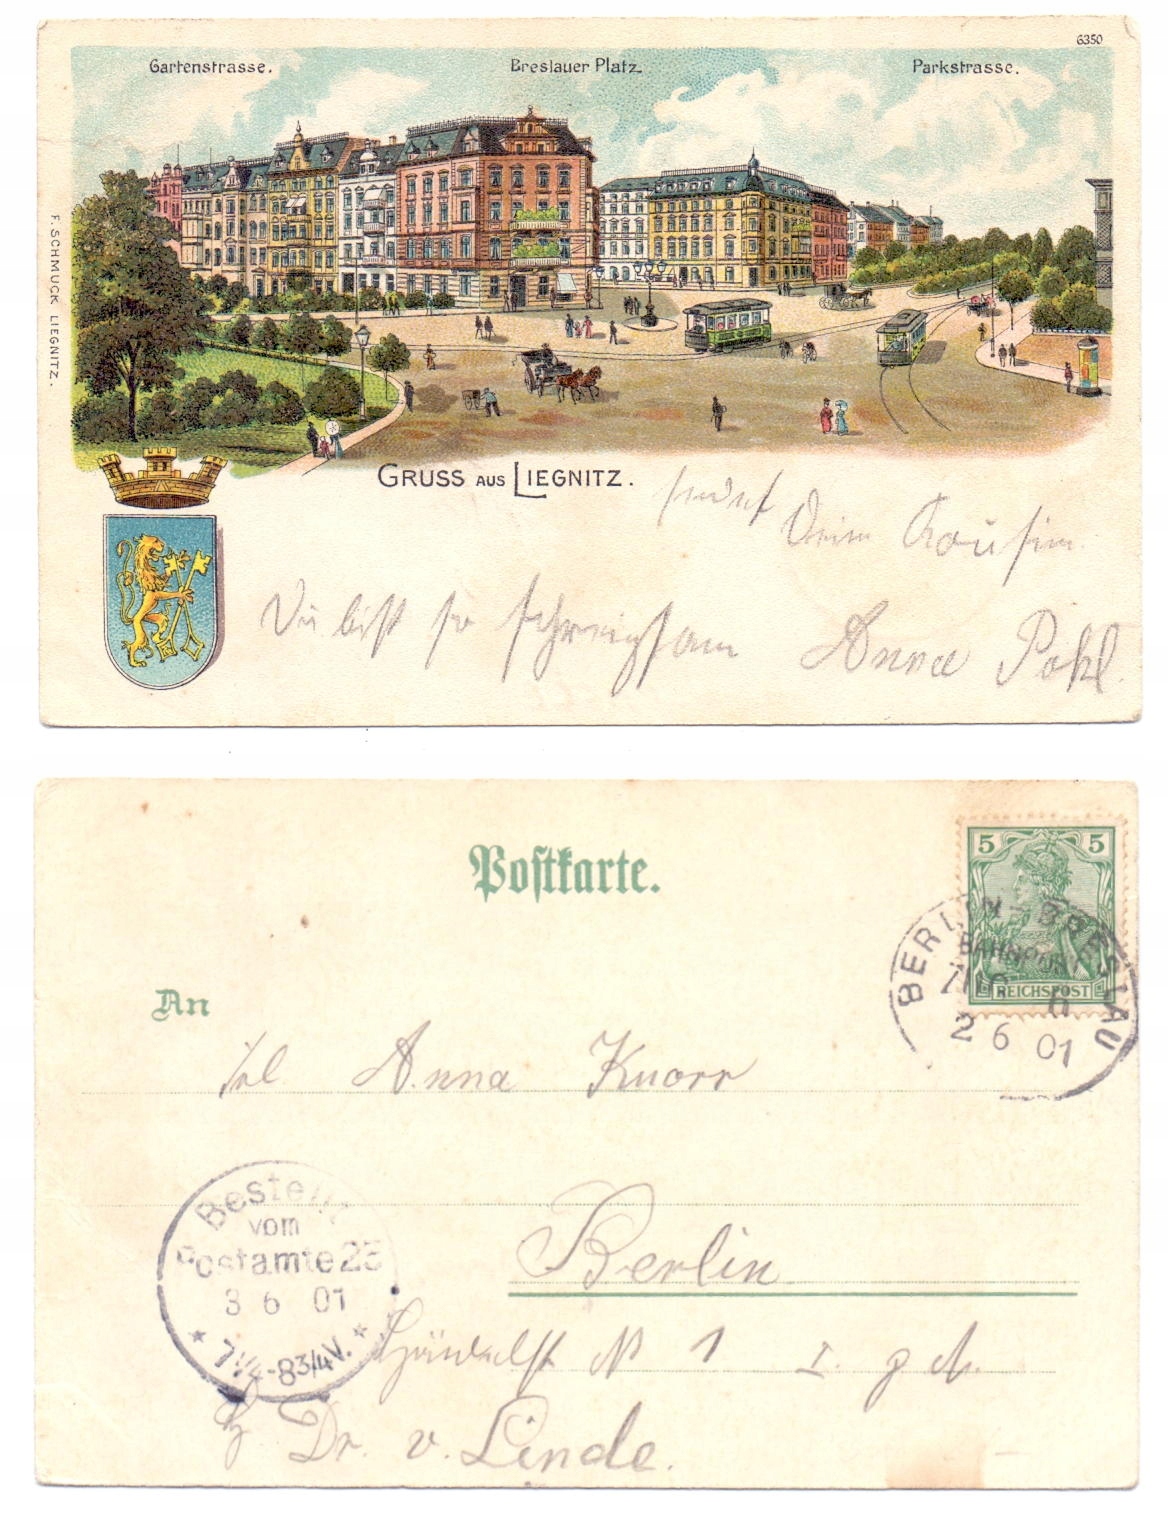 6350
Gartenstrasse.
Breslauer Platz.
Parkstrasse.
F. SCHMUCK LIEGNITZ.
GRUSS AUS LIEGNITZ.
sendet
Deine Kousine
Du bist so schweigsam
Anna Pohl.
Postkarte.
5 5
REICHSPOST
BERLIN-BRESLAU
BAHNPOST
2 6 01
An
Frl Anna Knorr
Bestellt
vom
Postamte 25
3 6 01
7 1/4-8 3/4 V.
Berlin
No 1
Dr. v. Linde.